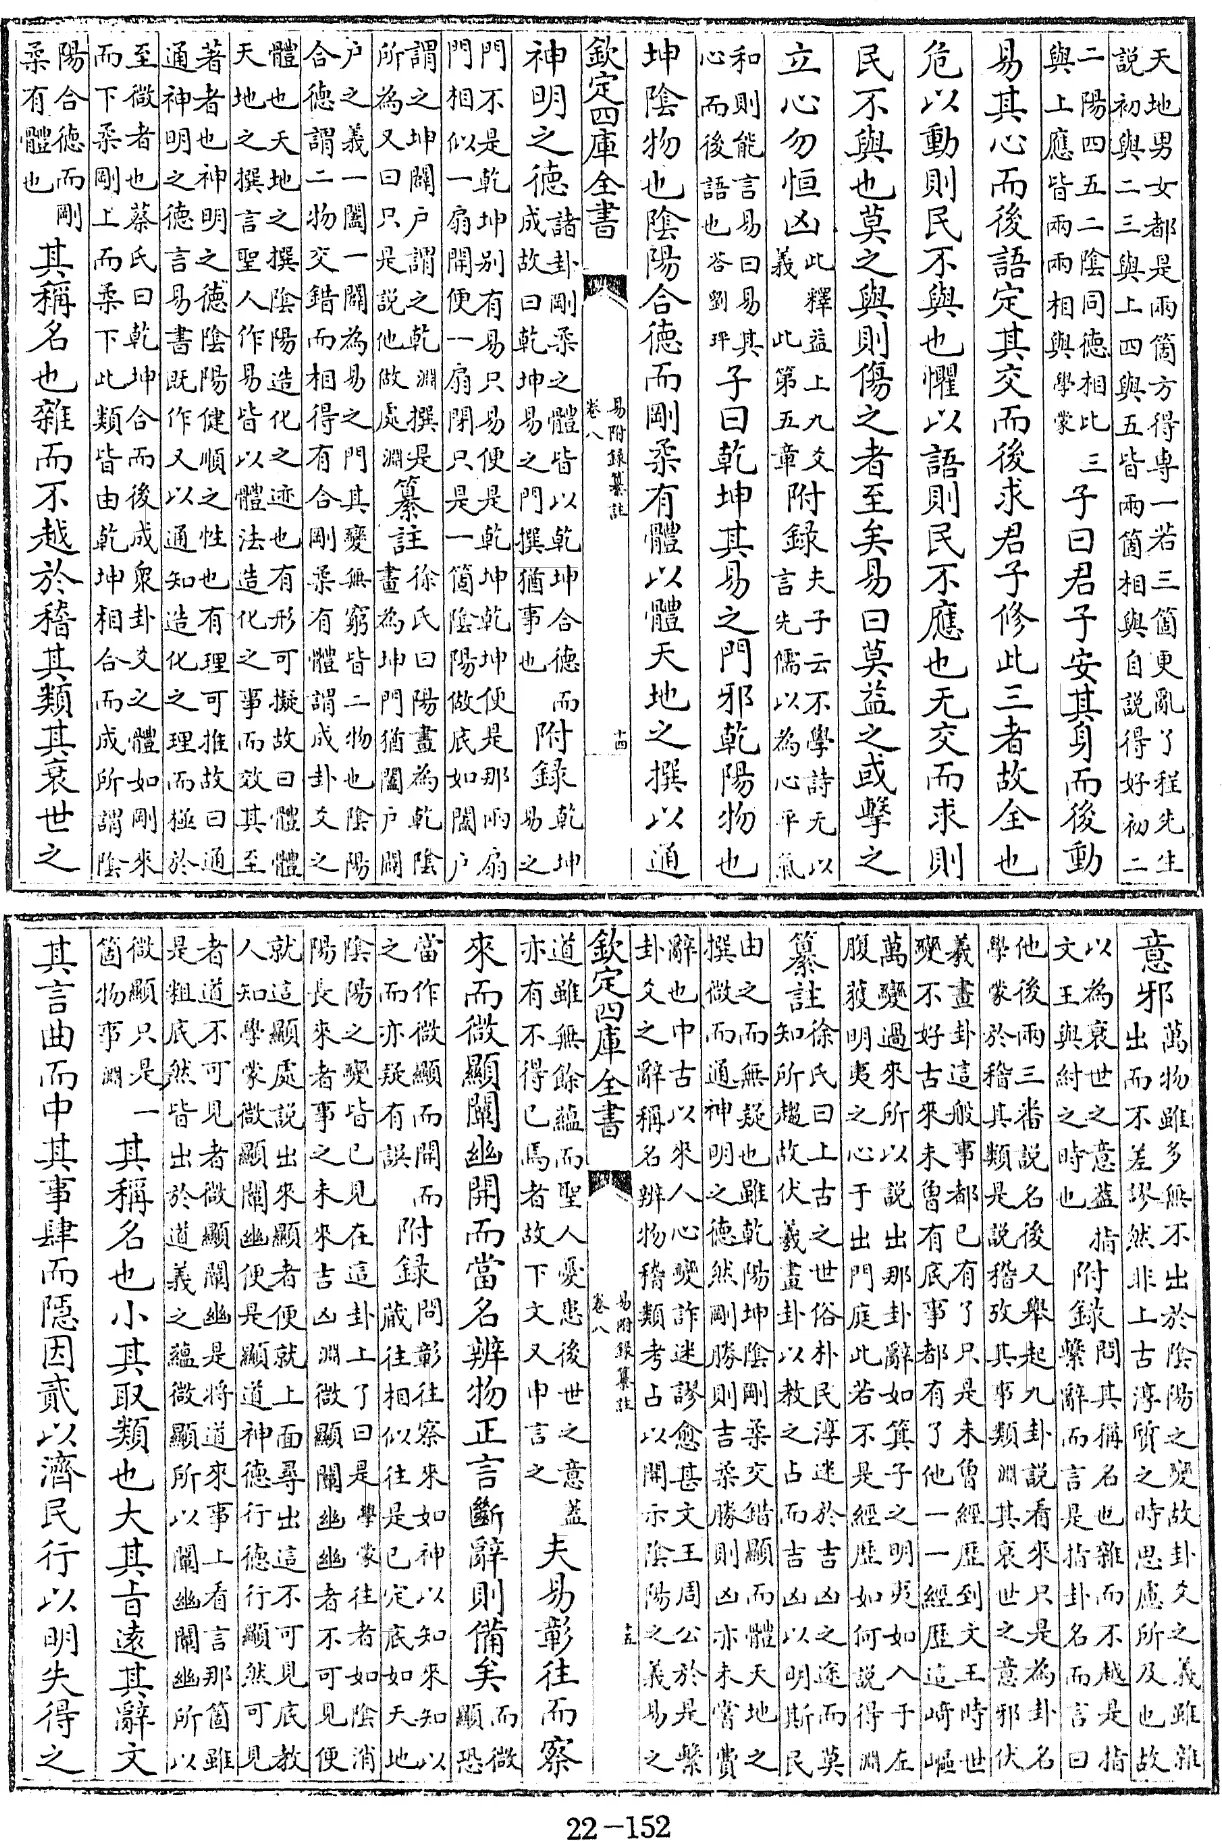 天地男女都是兩箇方得専一若三箇更亂了程先生
説初與二三與上四與五皆兩箇相與自説得好初二
二陽四五二陰同德相比三
與上應皆兩兩相與學蒙
子曰君子安其身而後動
易其心而後語定其交而後求君子修此三者故全也
危以動則民不與也懼以語則民不應也无交而求則
民不與也莫之與則傷之者至矣易曰莫益之或擊之
立心勿恒凶
此釋益上九爻
義 此第五章
附録
夫子云不學詩无以
言先儒以為心平氣
和則能言易曰易其
心而後語也答劉
子曰乾坤其易之門邪乾陽物也
坤陰物也陰陽合德而剛柔有體以體天地之撰以通
欽定四庫全書
易附録纂註
卷八
十四
神明之德
諸卦剛柔之體皆以乾坤合德而
成故曰乾坤易之門撰猶事也
附録
乾坤
易之
門不是乾坤别有易只易便是乾坤乾坤便是那兩扇
門相似一扇開便一扇閉只是一箇陰陽做底如闔户
謂之坤闢户謂之乾淵撰是
所為又曰只是説他做處淵
纂註
徐氏曰陽畫為乾陰
畫為坤門猶闔户闢
户之義一闔一闢為易之門其變無窮皆二物也陰陽
合德謂二物交錯而相得有合剛柔有體謂成卦爻之
體也天地之撰陰陽造化之迹也有形可擬故曰體體
天地之撰言聖人作易皆以體法造化之事而效其至
著者也神明之德陰陽健順之性也有理可推故曰通
通神明之德言易書既作又以通知造化之理而極於
至微者也蔡氏曰乾坤合而後成衆卦爻之體如剛來
而下柔剛上而柔下此類皆由乾坤相合而成所謂陰
陽合德而剛
柔有體也
其稱名也雜而不越於稽其類其衰世之
意邪
萬物雖多無不出於陰陽之變故卦爻之義雖雜
出而不差謬然非上古淳質之時思慮所及也故
以為衰世之意蓋指
文王與紂之時也
附録
問其稱名也雜而不越是指
繫辭而言是指卦名而言曰
他後兩三番説名後又舉起九卦説看來只是為卦名
學蒙於稽其類是説稽攷其事類淵其衰世之意邪伏
羲畫卦這般事都已有了只是未曾經歴到文王時世
變不好古來未曾有底事都有了他一一經歴這崎嶇
萬變過來所以説出那卦辭如箕子之明夷如入于左
腹獲明夷之心于出門庭此若不是經歴如何説得淵
纂註
徐氏曰上古之世俗朴民淳迷於吉凶之途而莫
知所趨故伏羲畫卦以教之占而吉凶以明斯民
由之而無疑也雖乾陽坤陰剛柔交錯顯而體天地之
撰微而通神明之德然剛勝則吉柔勝則凶亦未嘗費
辭也中古以來人心變詐迷謬愈甚文王周公於是繫
卦爻之辭稱名辨物稽類考占以開示陰陽之義易之
欽定四庫全書
易附録纂註
卷八
十五
道雖無餘藴而聖人憂患後世之意蓋
亦有不得已焉者故下文又申言之
夫易彰往而察
來而微顯闡幽開而當名辨物正言斷辭則備矣
而微
顯恐
當作微顯而開而
之而亦疑有誤
附録
問彰往察來如神以知來知以
藏往相似往是已定底如天地
陰陽之變皆已見在這卦上了曰是學蒙往者如陰消
陽長來者事之未來吉凶淵微顯闡幽幽者不可見便
就這顯處説出來顯者便就上面尋出這不可見底教
人知學蒙微顯闡幽便是顯道神德行德行顯然可見
者道不可見者微顯闡幽是将道來事上看言那箇雖
是粗底然皆出於道義之蘊微顯所以闡幽闡幽所以
微顯只是一
箇物事淵
其稱名也小其取類也大其㫖遠其辭文
其言曲而中其事肆而隱因貳以濟民行以明失得之
22-152